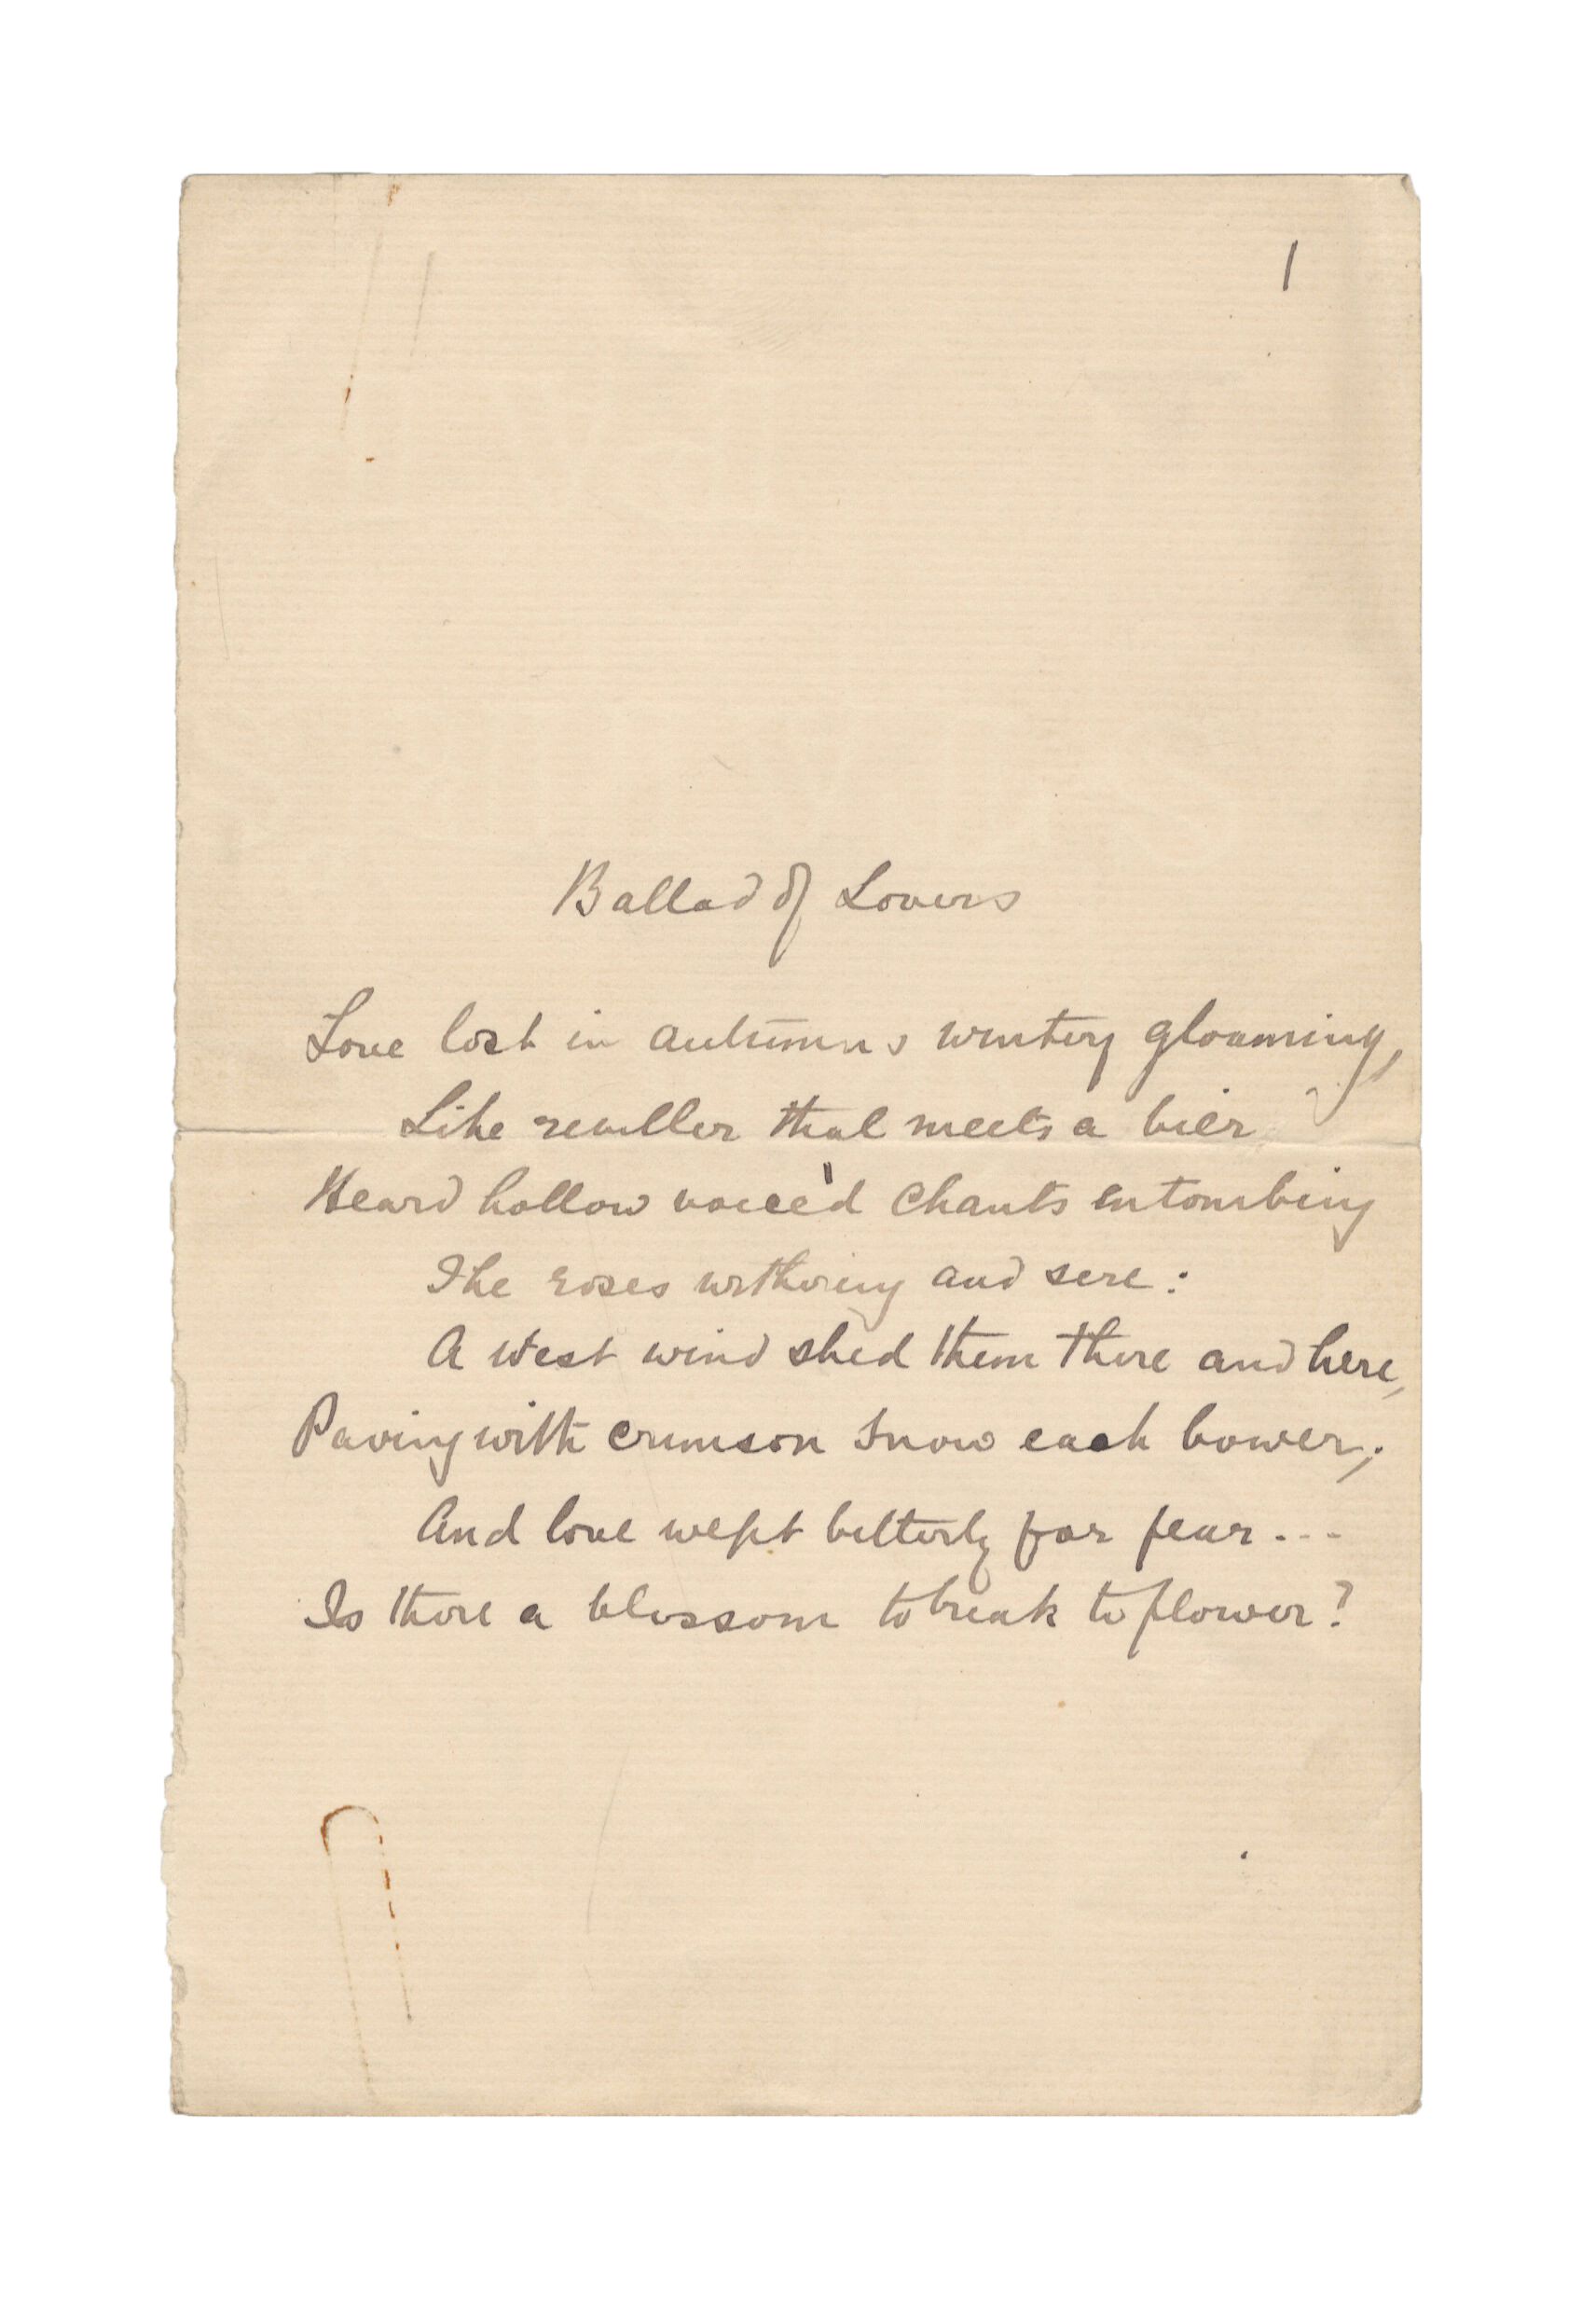 1
Ballad of Lovers
Love lost in autumns wintry gloaming,
Like reveller that meets a bier
Heard hollow voice'd chants entombing
The roses withering and sere:
A West wind shed them there and here,
Paving with crimson snow each bower;
And love wept bitterly for fear...
Is there a blossom to break to flower?